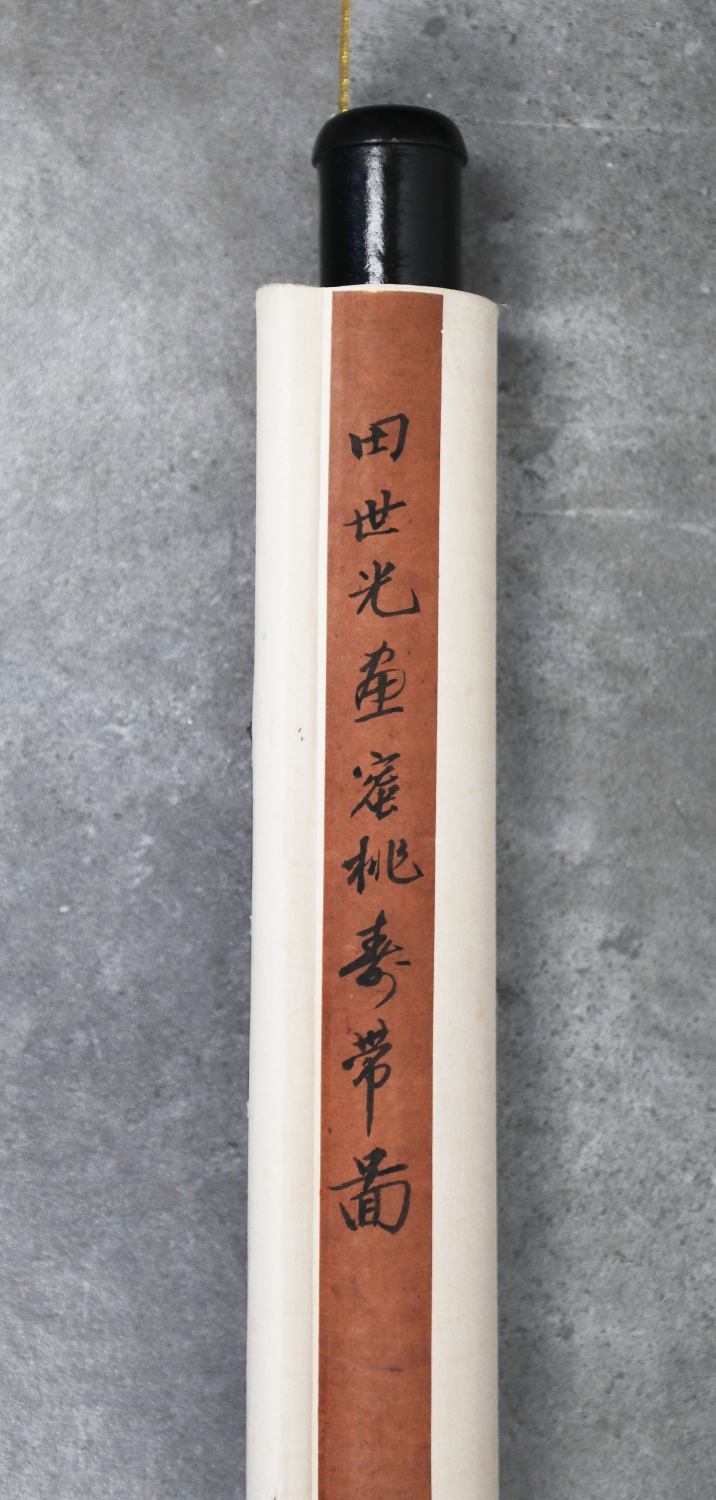 田世光画蜜桃寿带啚